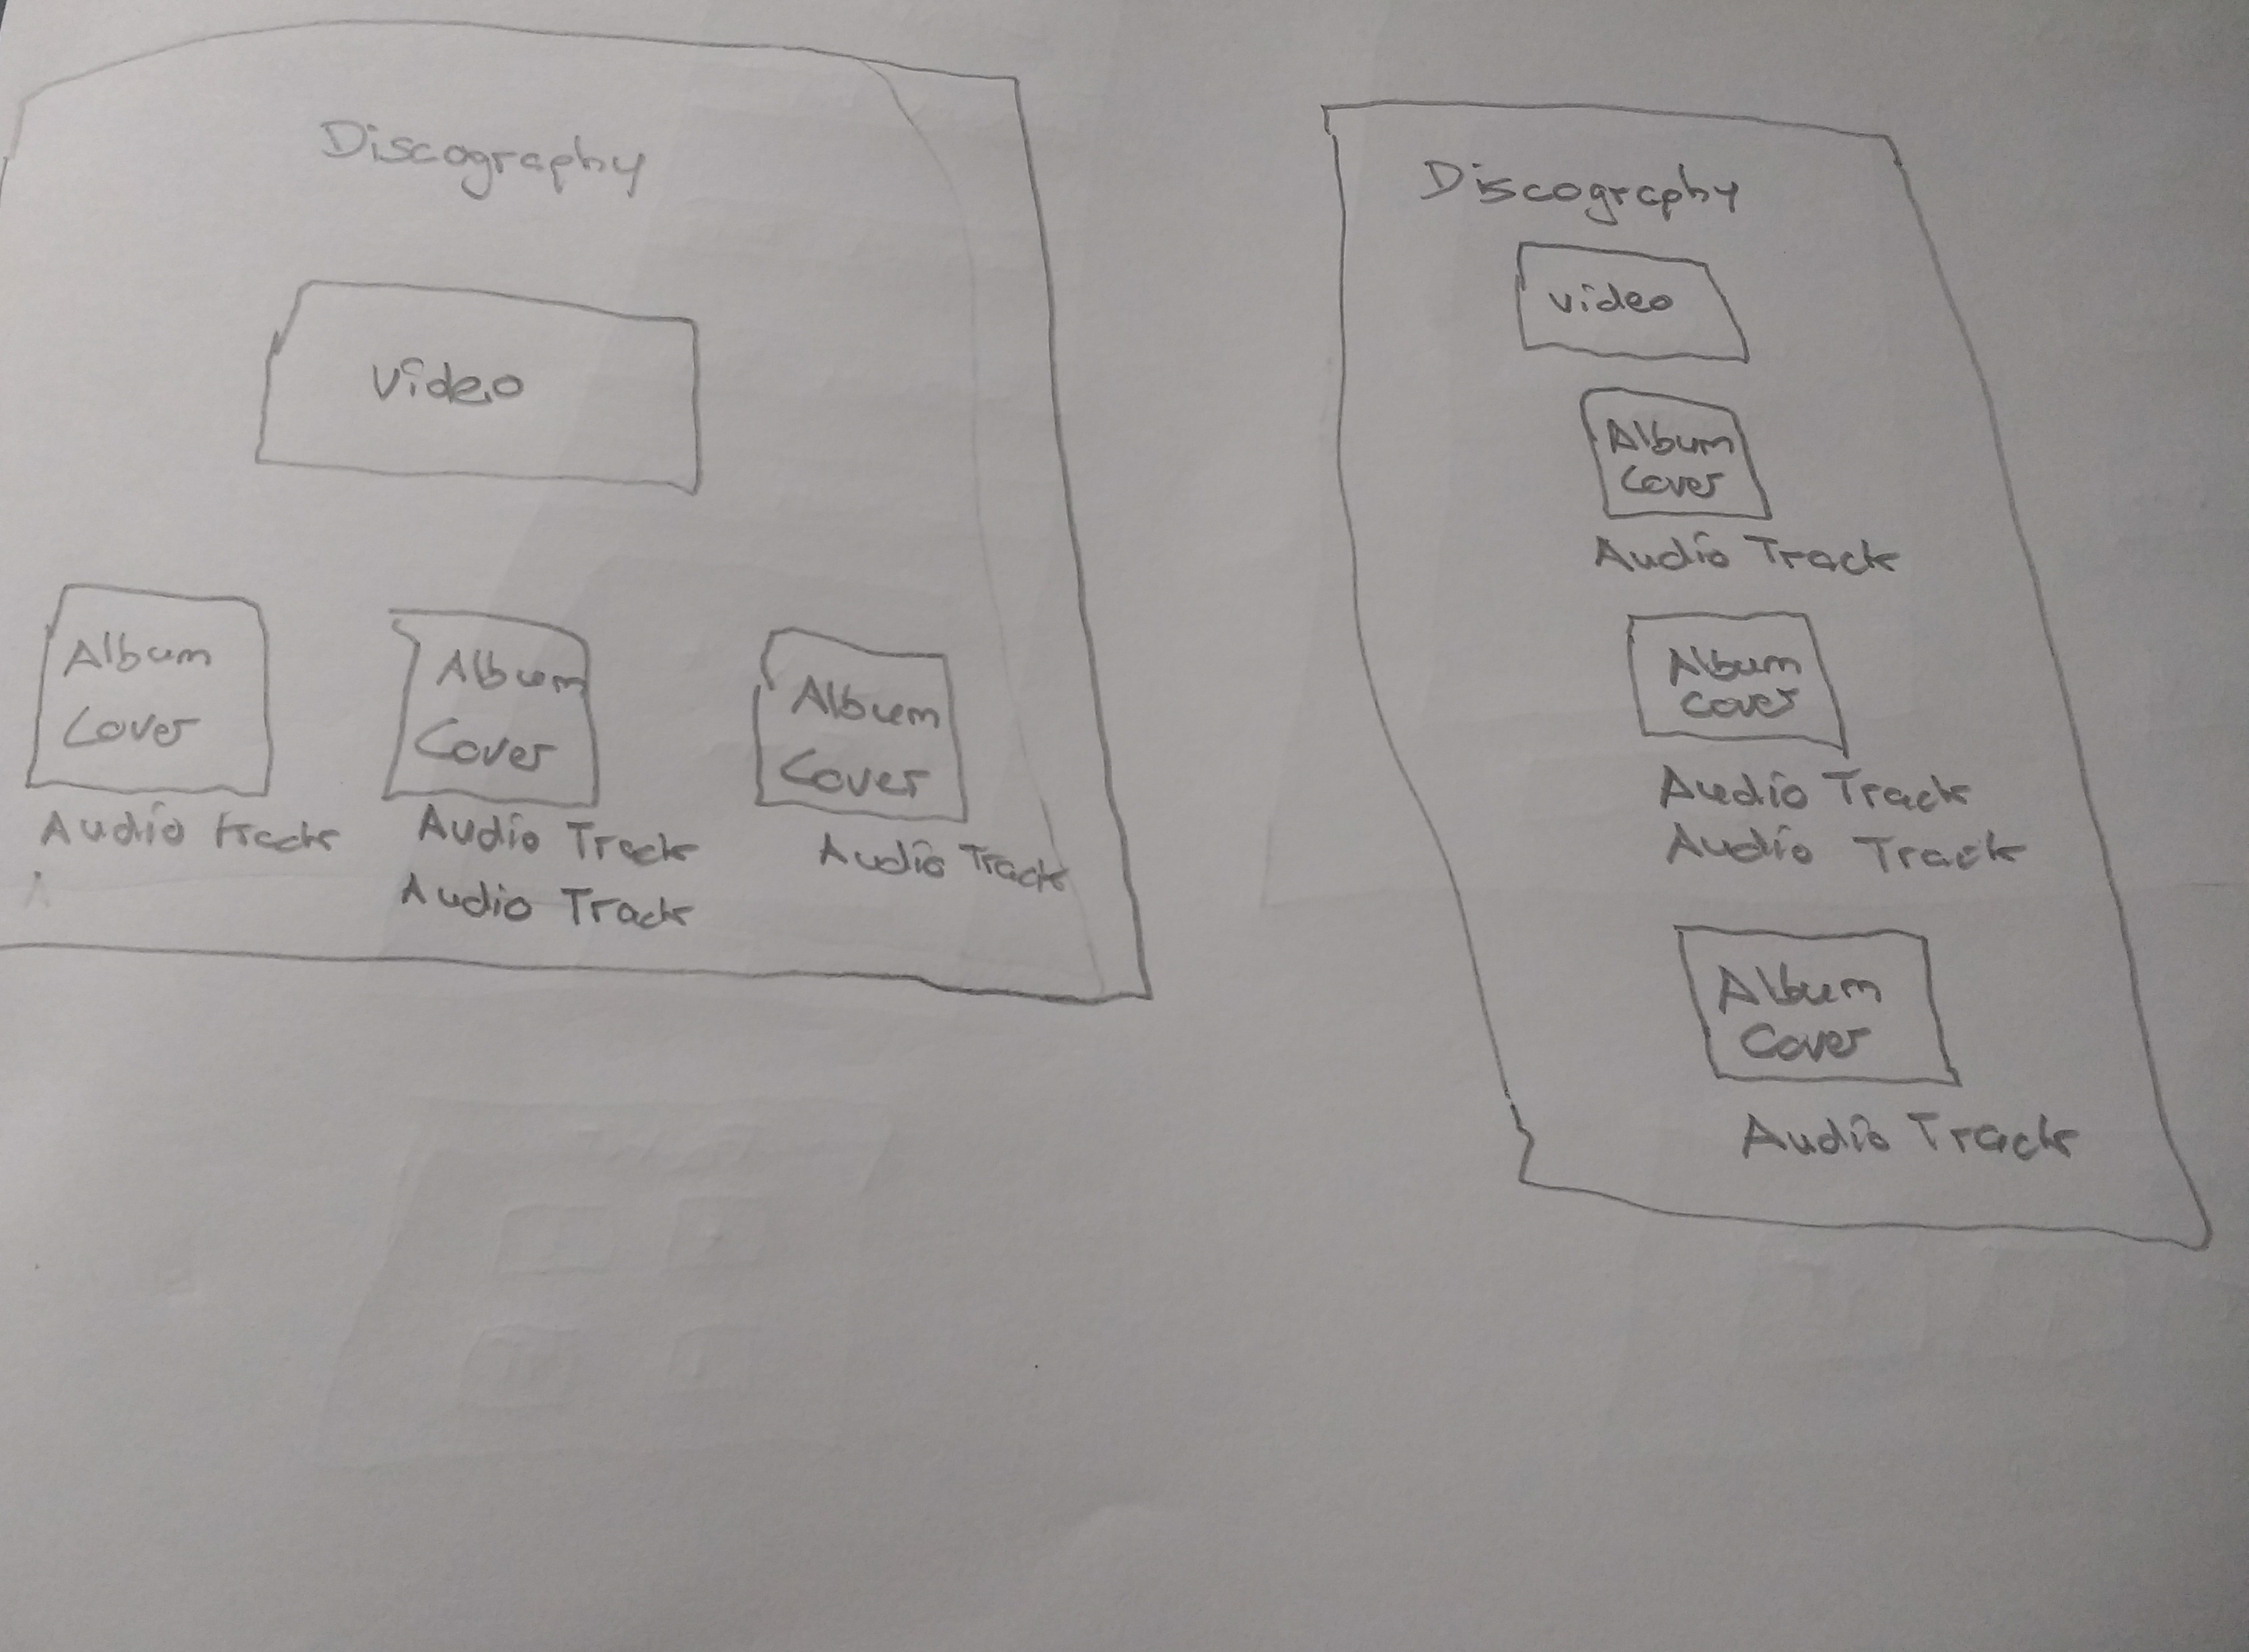 Discography
Video
Album
Cover
Audio track
Album
Cover
Audio Track
Audio Track
Album
Cover
Audio Track
Discography
Video
Album
Cover
Audio Track
Album
Cover
Audio Track
Audio Track
Album
Cover
Audio Track